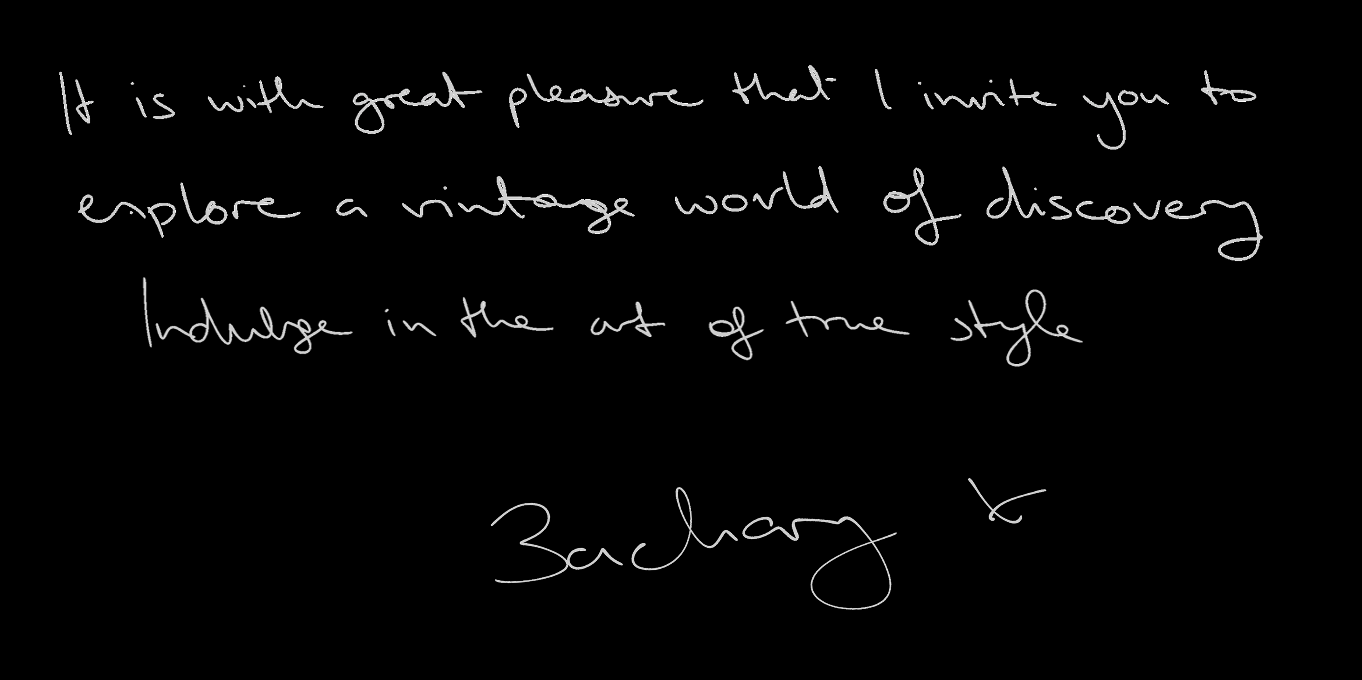 It is with great pleasure that I invite you to
explore a vintage world of discovery
Indulge in the art of true style
Zachary x